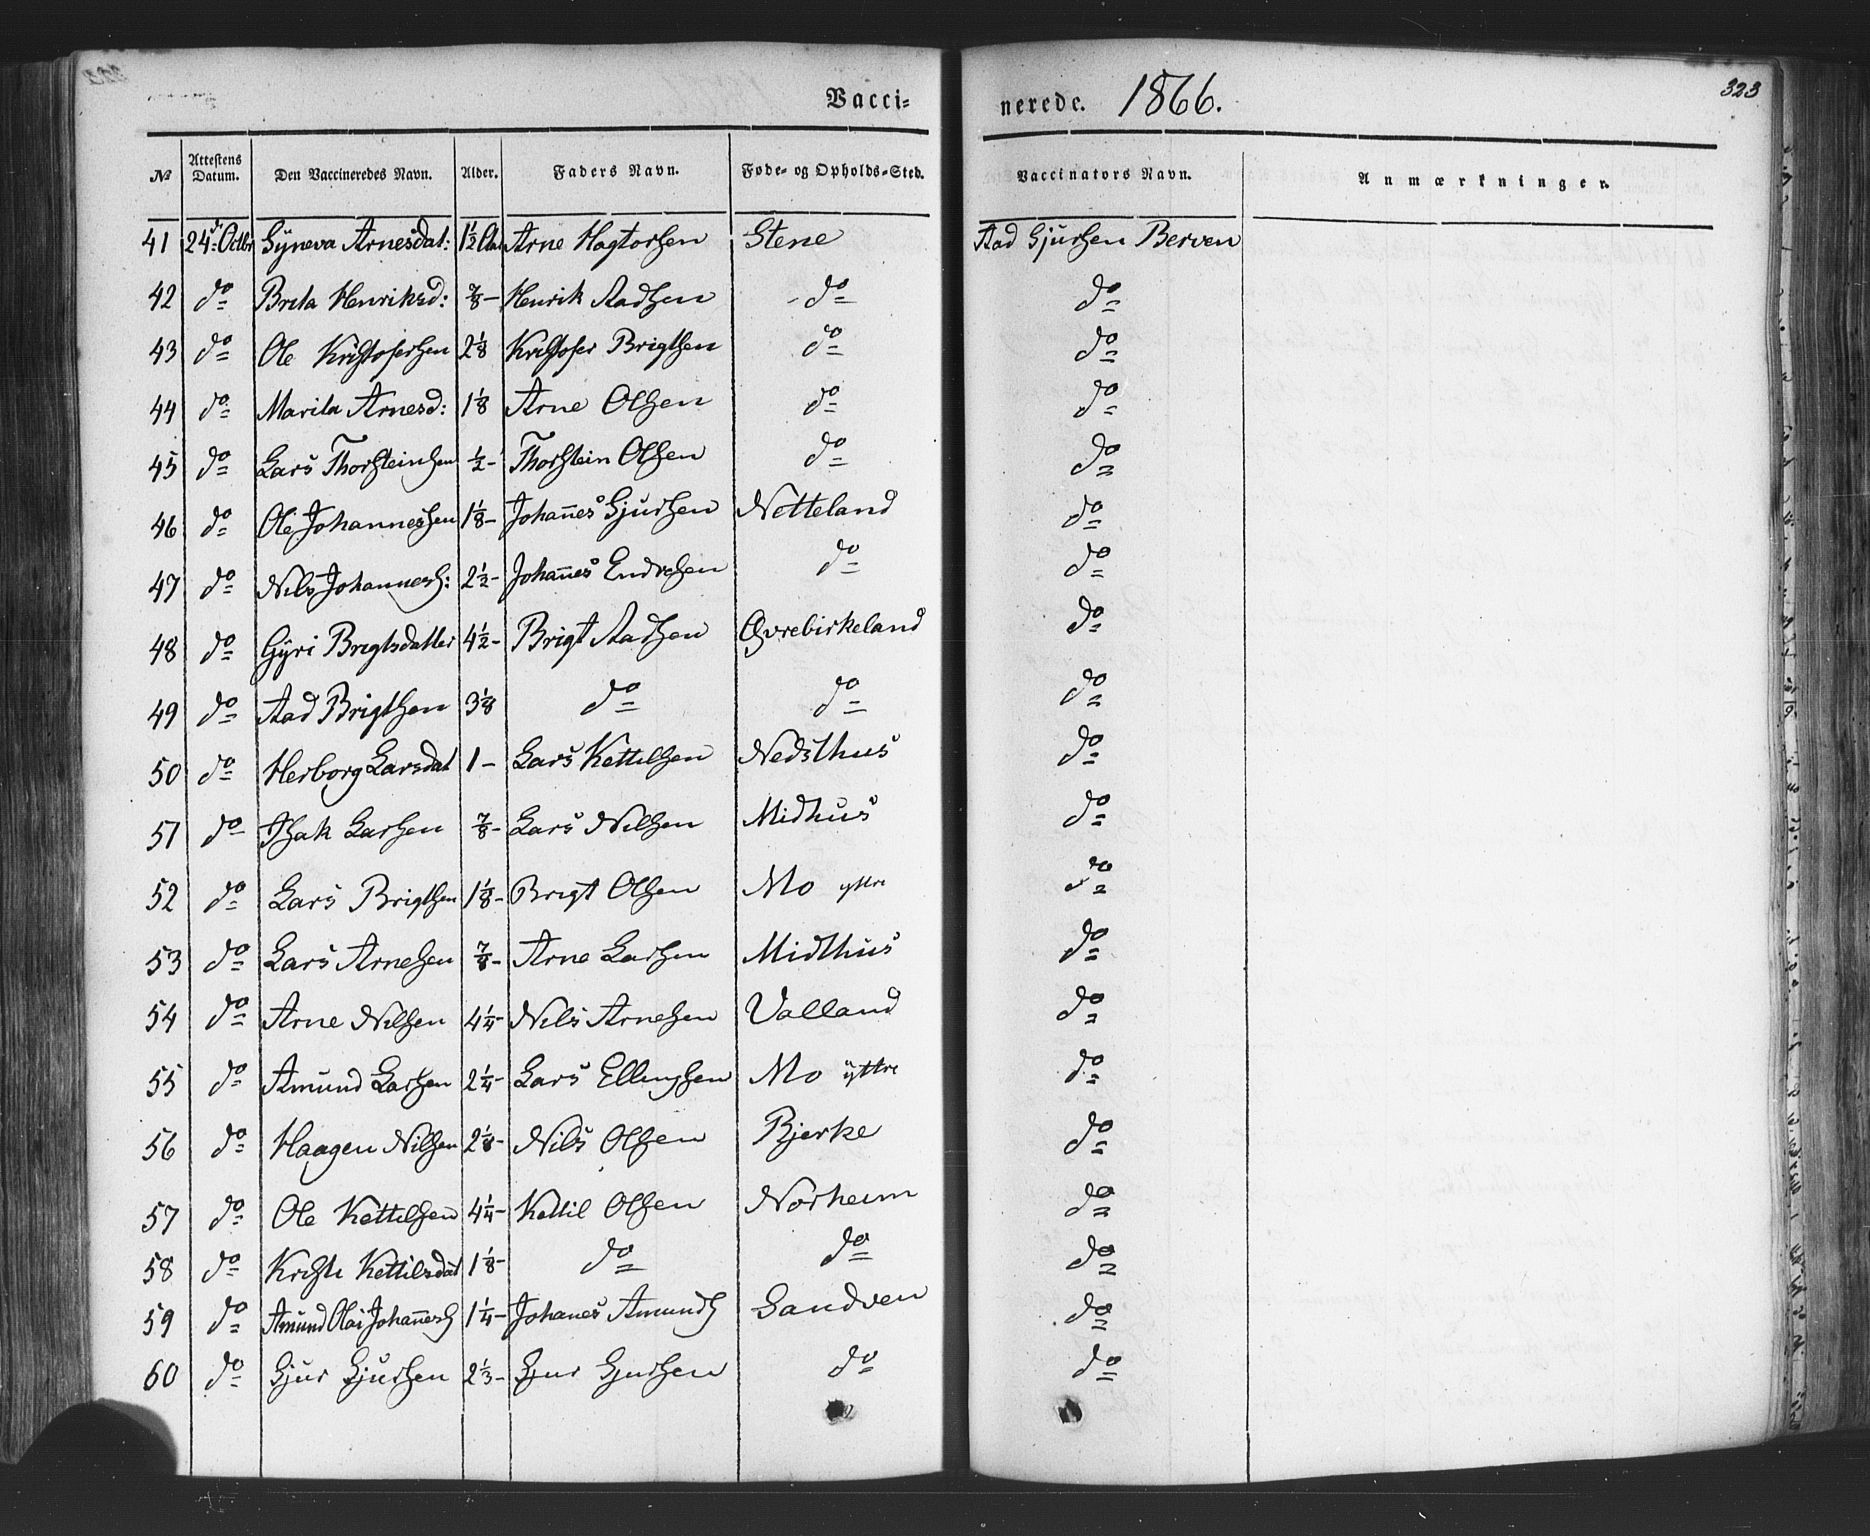 Vacci- nerede. 1866. 323
No Attestens Datum. Den Vaccineredes Navn. Alder. Faders Navn. Føde- og Opholds-Sted. Vaccinators Navn. Anmærkninger.
41 24de Octbr Syneva Arnesdat: 1½ Arne Hagtorsen Stene Aad Sjursen Berven
42 do Brita Henriksd: ⅞ - Henrik Aadsen do do
43 do Ole Kristofersen 2⅛ Kristofer Brigtsen do do
44 do Marita Arnesd: 1⅛ Arne Olsen do do
45 do Lars Thorsteinsen ½ - Thorstein Olsen do do
46 do Ole Johannessen 1⅛ - Johañes Sjursen Netteland do
47 do Nils Johanness: 2½ - Johañes Endresen do do
48 do Gyri Brigtsdatter 4½ - Brigt Aadsen Øvrebirkeland do
49 do Aad Brigtsen 3⅛ do do do
50 do Herborg Larsdat 1 - Lars Kettilsen Nedsthus do
51 do Isak Larsen ⅞ - Lars Nilsen Midhus do
52 do Lars Brigtsen 1⅛ - Brigt Olsen Mo yttre do
53 do Lars Arnesen ⅞ - Arne Larsen Midthus do
54 do Arne Nilsen 4¼ - Nils Arnesen Valland do
55 do Amund Larsen 2¼ - Lars Ellingsen Mo yttre do
56 do Haagen Nilsen 2⅛ - Nils Olsen Bjerke do
57 do Ole Kettilsen 4¼ - Kettil Olsen Norheim do
58 do Kristi Kettilsdat 1⅛ - do do do
59 do Amund Olai Johañess 1¼ - Johanes Amunds Sandven do
60 do Sjur Sjursen 2⅓ - Sjur Sjursen do do